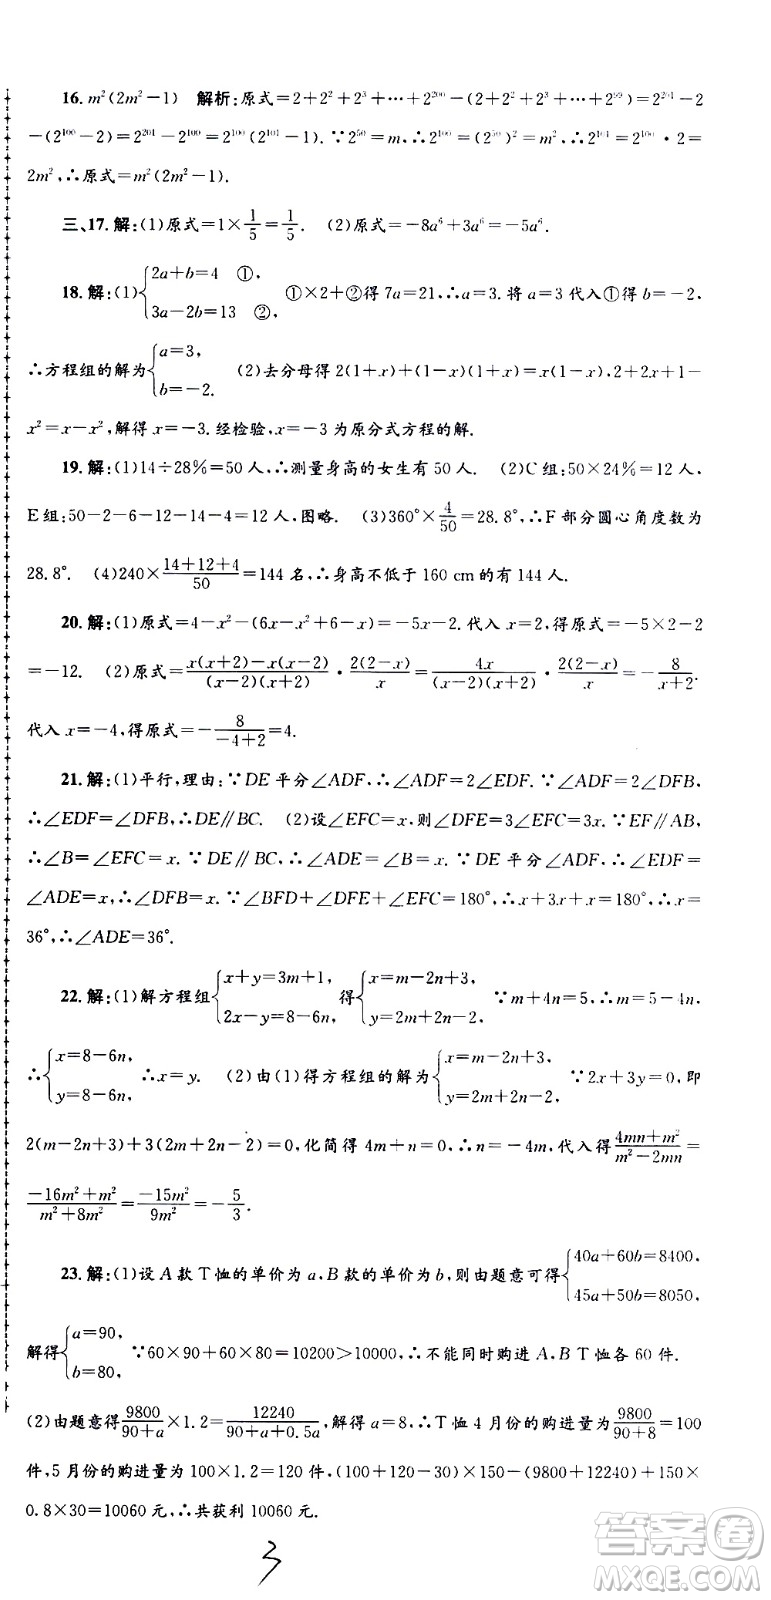 16. m²(2m²−1)　解析:原式=2+2²+2³+…+2²⁰⁰−(2+2²+2³+…+2⁹⁹)=2²⁰¹−2
−(2¹⁰⁰−2)=2²⁰¹−2¹⁰⁰=2¹⁰⁰(2¹⁰¹−1).∵2⁵⁰=m,∴2¹⁰⁰=(2⁵⁰)²=m²,∴2¹⁰¹=2¹⁰⁰·2=
2m²,∴原式=m²(2m²−1).
三、17.解:(1)原式=1×1/5=1/5.　(2)原式=−8a⁶+3a⁶=−5a⁶.
18.解:(1){2a+b=4　①, 3a−2b=13　②, ①×2+②得7a=21,∴a=3.将a=3代入①得b=−2,
∴方程组的解为{a=3, b=−2.　(2)去分母得2(1+x)+(1−x)(1+x)=x(1−x),2+2x+1−
x²=x−x²,解得x=−3.经检验,x=−3为原分式方程的解.
19.解:(1)14÷28%=50人,∴测量身高的女生有50人.　(2)C组:50×24%=12人,
E组:50−2−6−12−14−4=12人,图略.　(3)360°×4/50=28.8°,∴F部分圆心角度数为
28.8°.　(4)240×(14+12+4)/50=144名,∴身高不低于160 cm的有144人.
20.解:(1)原式=4−x²−(6x−x²+6−x)=−5x−2.代入x=2,得原式=−5×2−2
=−12.　(2)原式=(x(x+2)−x(x−2))/((x−2)(x+2))·2(2−x)/x=4x/((x−2)(x+2))·2(2−x)/x=−8/(x+2).
代入x=−4,得原式=−8/(−4+2)=4.
21.解:(1)平行,理由:∵DE平分∠ADF,∴∠ADF=2∠EDF.∵∠ADF=2∠DFB,
∴∠EDF=∠DFB,∴DE∥BC.　(2)设∠EFC=x,则∠DFE=3∠EFC=3x.∵EF∥AB,
∴∠B=∠EFC=x.∵DE∥BC,∴∠ADE=∠B=x.∵DE平分∠ADF,∴∠EDF=
∠ADE=x,∴∠DFB=x.∵∠BFD+∠DFE+∠EFC=180°,∴x+3x+x=180°,∴x=
36°,∴∠ADE=36°.
22.解:(1)解方程组{x+y=3m+1, 2x−y=8−6n, 得{x=m−2n+3, y=2m+2n−2, ∵m+4n=5,∴m=5−4n,
∴{x=8−6n, y=8−6n, ∴x=y.　(2)由(1)得方程组的解为{x=m−2n+3, y=2m+2n−2, ∵2x+3y=0,即
2(m−2n+3)+3(2m+2n−2)=0,化简得4m+n=0,∴n=−4m,代入得(4mn+m²)/(m²−2mn)=
(−16m²+m²)/(m²+8m²)=−15m²/9m²=−5/3.
23.解:(1)设A款T恤的单价为a,B款的单价为b,则由题意可得{40a+60b=8400, 45a+50b=8050,
解得{a=90, b=80, ∵60×90+60×80=10200>10000,∴不能同时购进A,B T恤各60件.
(2)由题意得9800/(90+a)×1.2=12240/(90+a+0.5a),解得a=8,∴T恤4月份的购进量为9800/(90+8)=100
件,5月份的购进量为100×1.2=120件,(100+120−30)×150−(9800+12240)+150×
0.8×30=10060元,∴共获利10060元.
3
答案圈
MXQE.COM